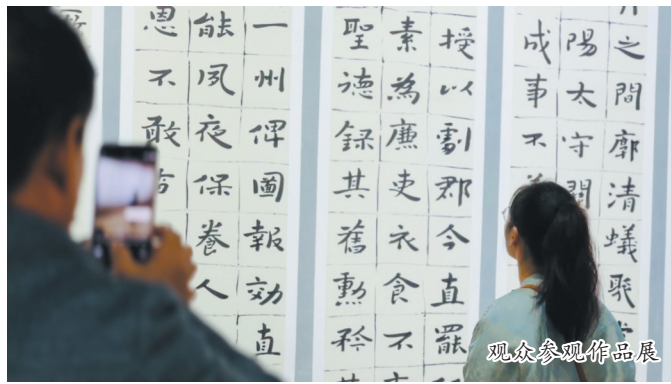 之間廓清蟻聚
陽太守關
成事不
授以劇郡今直罷
素為廉吏衣食不
聖德録其舊勳矜
一州俾圖報効直
能夙夜保養人
恩不敢
观众参观作品展